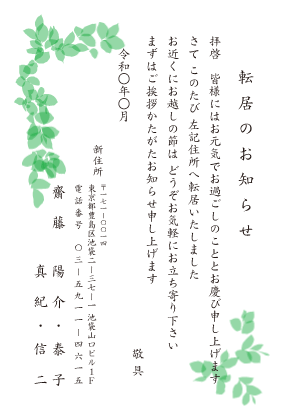 転居のお知らせ
拝啓　皆様にはお元気でお過ごしのこととお慶び申し上げます
さて このたび 左記住所へ転居いたしました
お近くにお越しの節は どうぞお気軽にお立ち寄り下さい
まずはご挨拶かたがたお知らせ申し上げます
敬具
令和〇年〇月
新住所
〒一七一―〇〇一四
東京都豊島区池袋二―三七―一 池袋山口ビル１Ｆ
電話番号　〇三―五九一一―四六一五
齋藤　陽介・泰子
真紀・信二